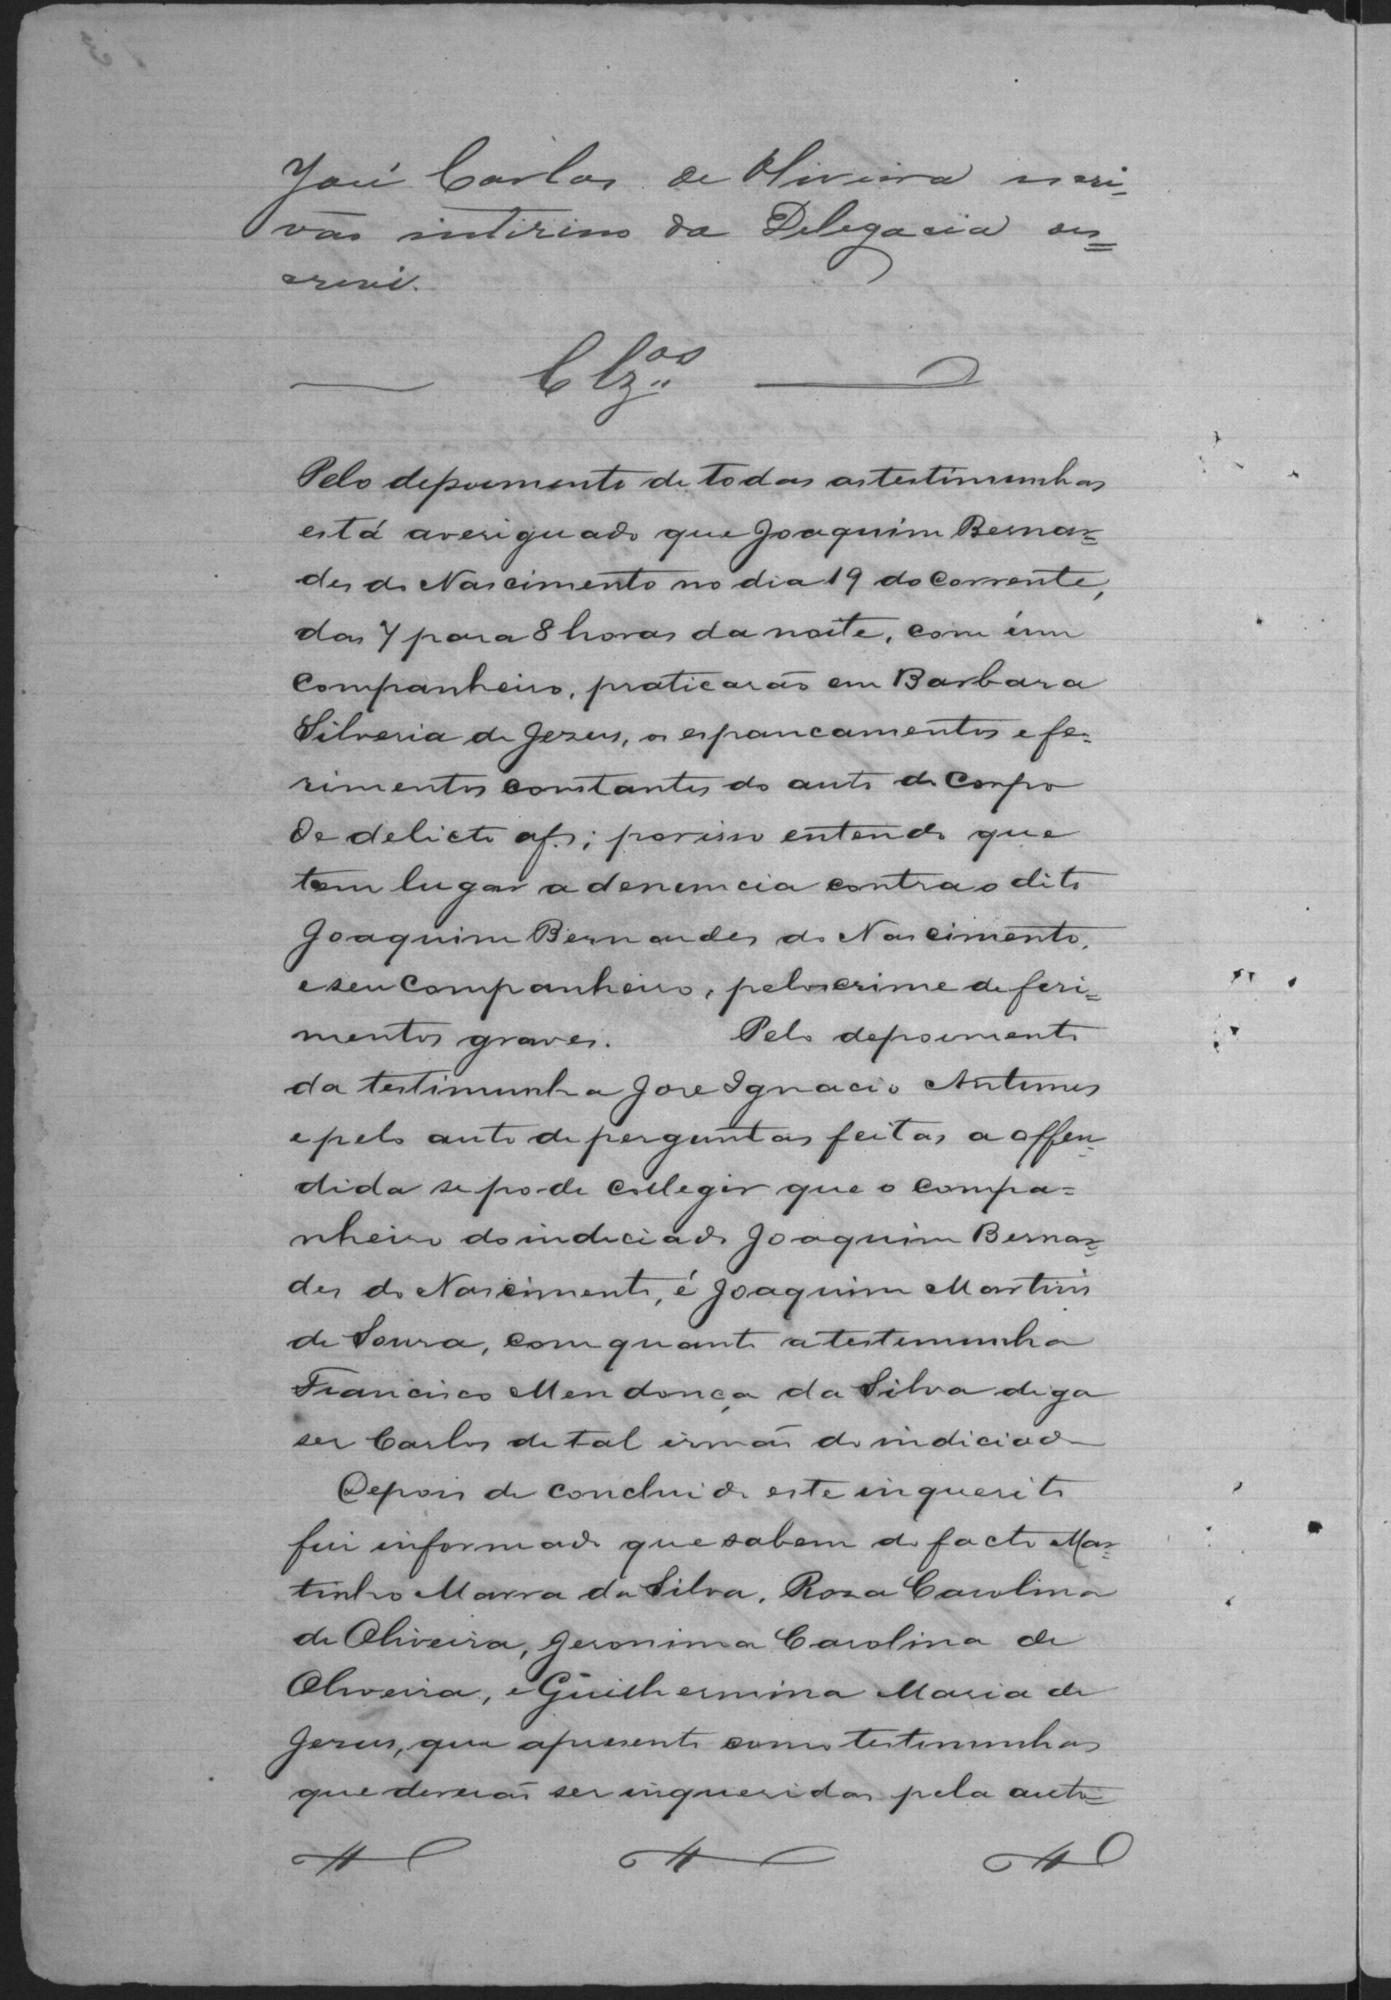 José Carlos de Oliveira escri-
vão interino da Delegacia es=
crevi.
Clzos
Pelo depoimento de todas as testimunhas
está averiguado que Joaquim Bernar=
des do Nascimento no dia 19 do corrente,
das 7 para 8 horas da noite, com úm
companheiro, praticarão em Barbara
Silveria de Jezus, os espancamentos e fe-
rimentos constantes do auto de corpo
de delicto af.; por isso entendo que
tem lugar a denuncia contra o dito
Joaquim Bernardes do Nascimento,
e seu companheiro, pelo crime de feri=
mentos graves. Pelo depoimento
da testimunha Jose Ignacio Antunes
e pelo auto de perguntas feitas a offen=
dida se pode collegir que o compa=
nheiro do indiciado Joaquim Bernar=
des do Nascimento, é Joaquim Martins
de Souza, com quanto a testemunha
Francisco Mendonça da Silva diga
ser Carlos de tal irmão do indiciado
Depois de concluido este inquerito
fui informado que sabem do facto Mar=
tinho Marra da Silva, Roza Carolina
de Oliveira, Jeronima Carolina de
Oliveira, e Guilhermina Maria de
Jezus, que apresento como testimunhas
que deverão ser inqueridas pela auto=